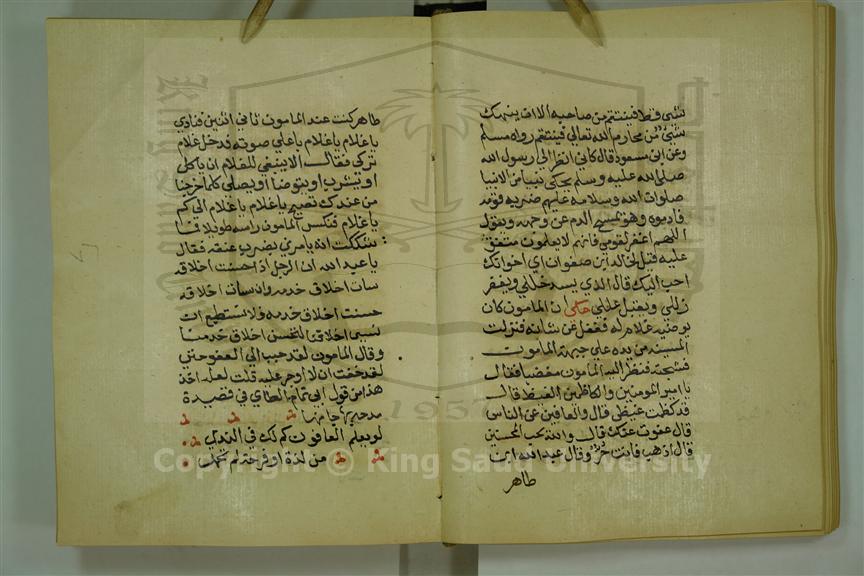 شئ قط فينتقم من صاحبه الا ان ينتهك
شئ من محارم الله تعالى فينتقم رواه مسلم
وعن ابن مسعود قال كاني انظر الى رسول الله
صلى الله عليه وسلم يحكي نبيا من الانبيا
صلوات الله وسلامه عليهم ضربه قومه
فادموه وهو يمسح الدم عن وجهه ويقول
اللهم اغفر لقومي فانهم لا يعلمون متفق
عليه قيل لخالد ابن صفوان اي اخوانك
احب اليك قال الذي يسد خللي ويغفر
زللي ويقبل عللي حكى ان المامون كان
يوضيه غلام له فغفل عن شانه فنزلت
من يده على جبهة المامون
فشجته فنظر اليه المامون مغضبا فقال
يا امير المومنين والكاظمين الغيظ قال
قد كظمت غيظي قال والعافين عن الناس
قال عفوت عنك قال والله يحب المحسنين
قال اذهب فانت حر وقال عبد الله ابن
طاهر
طاهر كنت عند المامون ثاني اثنين فنادي
يا غلام يا غلام باعلي صوته فدخل غلام
تركي فقال الا ينبغي للغلام ان ياكل
او يشرب او يتوضا او يصلي كلما خرجنا
من عندك تصيح يا غلام يا غلام الى كم
يا غلام فنكس المامون راسه طويلا فما
شككت انه يامرني بضرب عنقه فقال
يا عبد الله ان الرجل اذا حسنت اخلاقه
سات اخلاق خدمه وان سات اخلاقه
حسنت اخلاق خدمه فلا نستطيع ان
نسيئ اخلاقنا لتحسن اخلاق خدمنا
وقال المامون لقد حبب الي العفو حتى
لقد خفت ان لا اوجر عليه قلت لعله اخذ
هذا من قول ابي تمام الطاي في قصيدة
مدحه بها
لو يعلم العافون كم لك في الندي
من لذة او فرحة لم تحمد
Copyright © King Saud University
1957